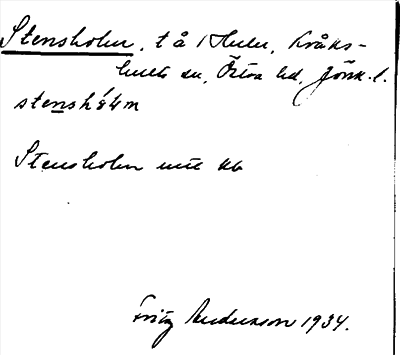 Stensholm, t å 1 Hulu, Kråks-
hults sn, Östra hd, Jönk. l.
stenshåɫm
Stensholm utt kb
Fritz Anderson 1934.